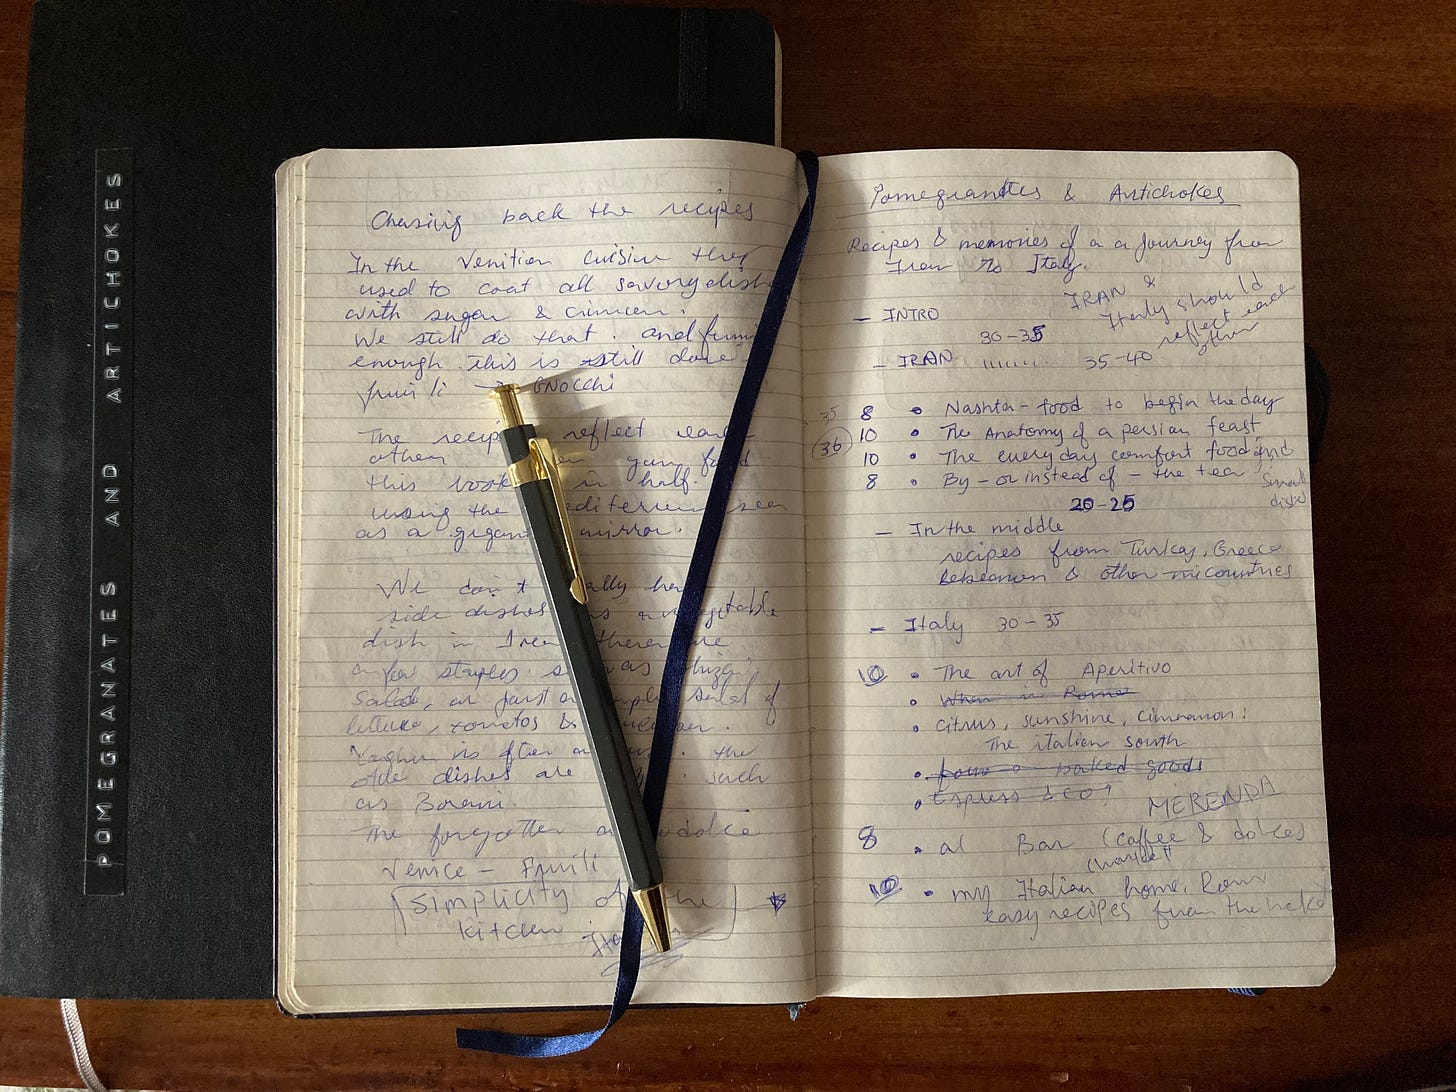 POMEGRANATES AND ARTICHOKES
Chasing back the recipes
In the Venitian cuisine they
used to coat all savory dish
with sugar &
We still do that. and funny
enough this is still done
friuli → GNOCCHI
The recip reflect each
other you fold
this book in half.
using the editerranean
as a gigan mirror.
We don't ally ha
side dishes as a vegetable
dish in Iran there are
a few staples su as
Salad, or just a simple salad of
lettuce, tomatos &
is often the
dishes are such
as Borani.
The forgotten dolce
Venice - Friuli
Simplicity of the
kitchen
Pomegranates & Artichokes
Recipes & memories of a a Journey from
Iran to Italy.
IRAN &
Italy should
reflect each
other
- INTRO
30-35
- IRAN 35-40
35 8 • Nashta - food to begin the day
36 10 • The Anatomy of a persian feast
10 • The everyday comfort food and
8 • By - or instead of - the tea small
dishes
20-25
- In the middle
recipes from Turkey, Greece
Lebeanon & other countries
- Italy 30-35
10 • The art of Aperitivo
• When in Rome
• citrus, sunshine, cinnamon:
The italian south
• baked goods
• Espress &co?
MERENDA
8 • al Bar (coffee & dolces)
10 • my Italian home. Rom
easy recipes from the